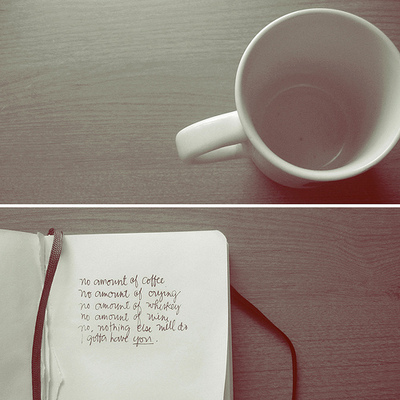 no amount of coffee
no amount of crying
no amount of whiskey
no amount of wine
no, nothing else will do
i gotta have you.